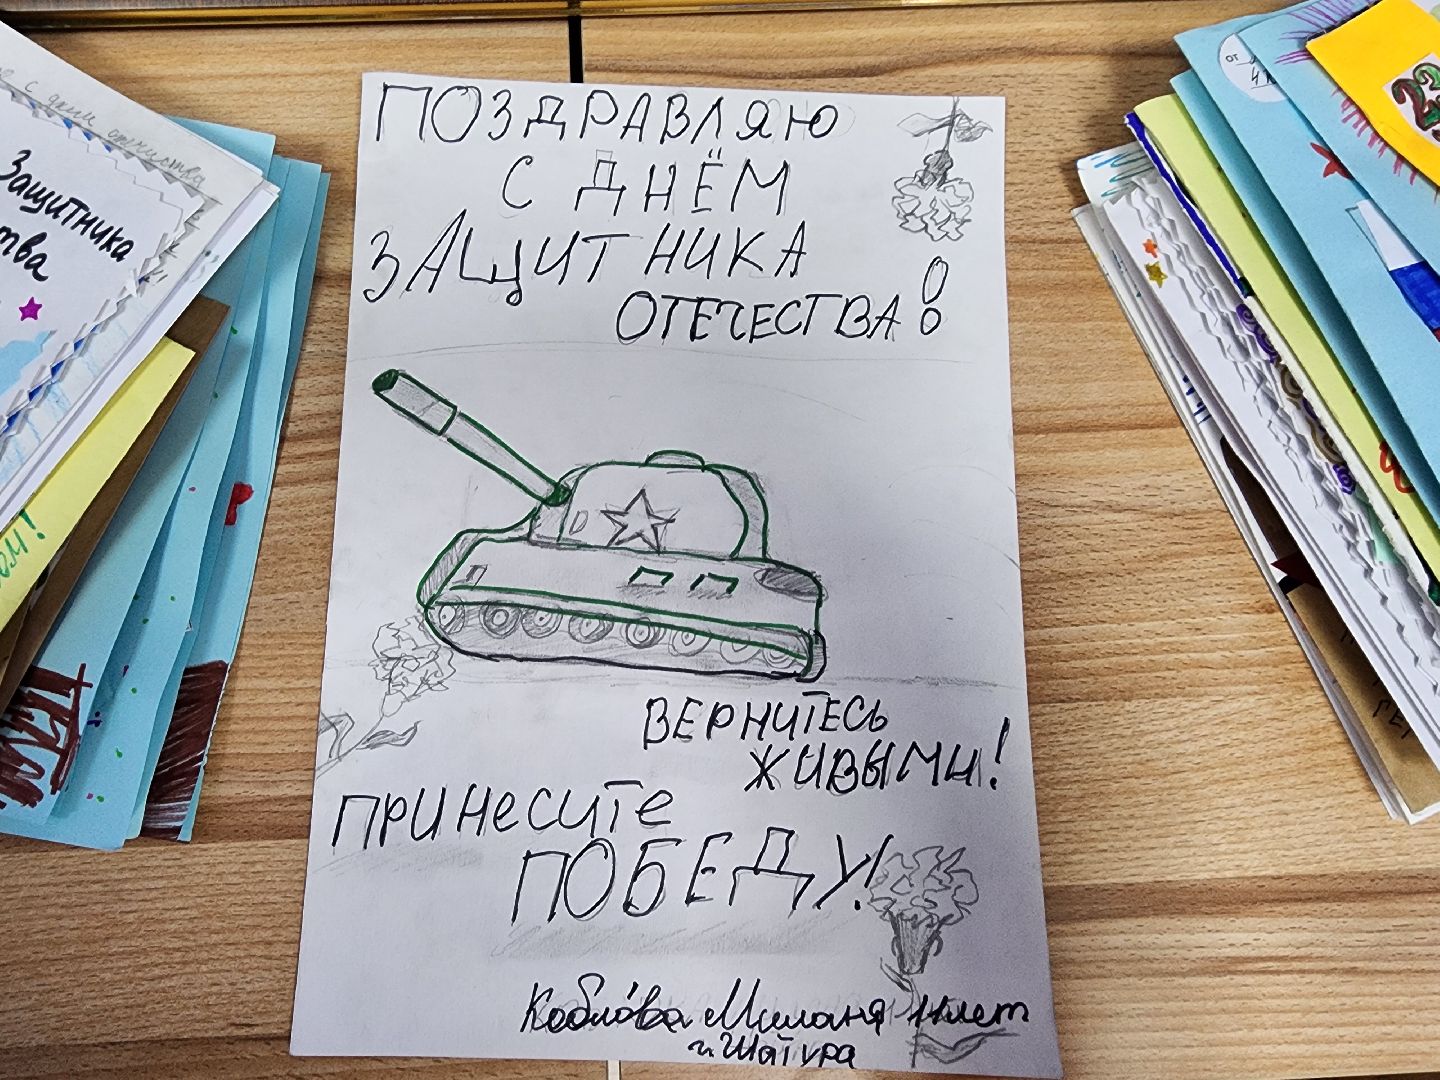 ПОЗДРАВЛЯЮ
С ДНЁМ
ЗАЩИТНИКА
ОТЕЧЕСТВА!
ВЕРНИТЕСЬ
ЖИВЫМИ!
ПРИНЕСИТЕ
ПОБЕДУ!
Милания 11 лет
г. Шатура
с днем
Защитника
тва
ом!
от
23